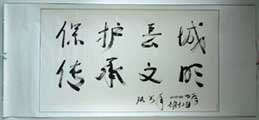 保护长城
传承文明